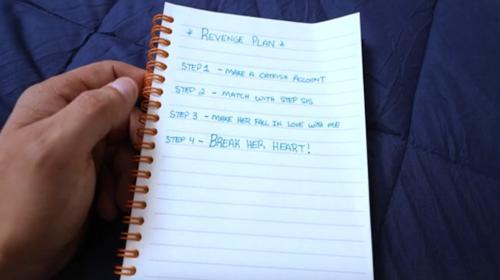 * REVENGE PLAN *
STEP 1 - MAKE A CATFISH ACCOUNT
STEP 2 - MATCH WITH STEP SIS
STEP 3 - MAKE HER FALL IN LOVE WITH ME
STEP 4 - BREAK HER HEART!